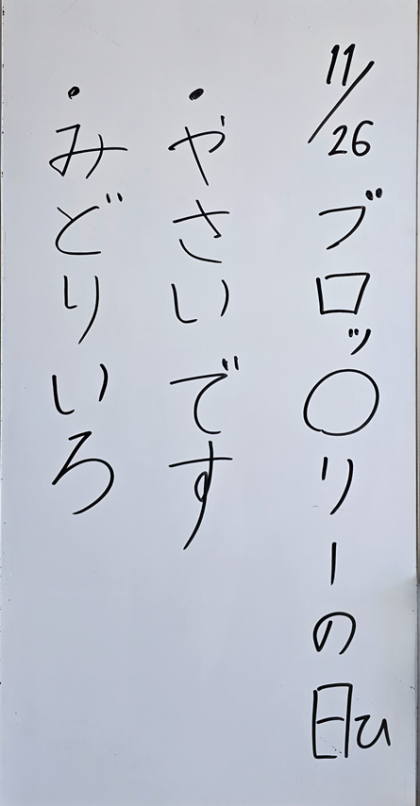 11/26 ブロッ〇リーの日ひ
・やさいです
・みどりいろ